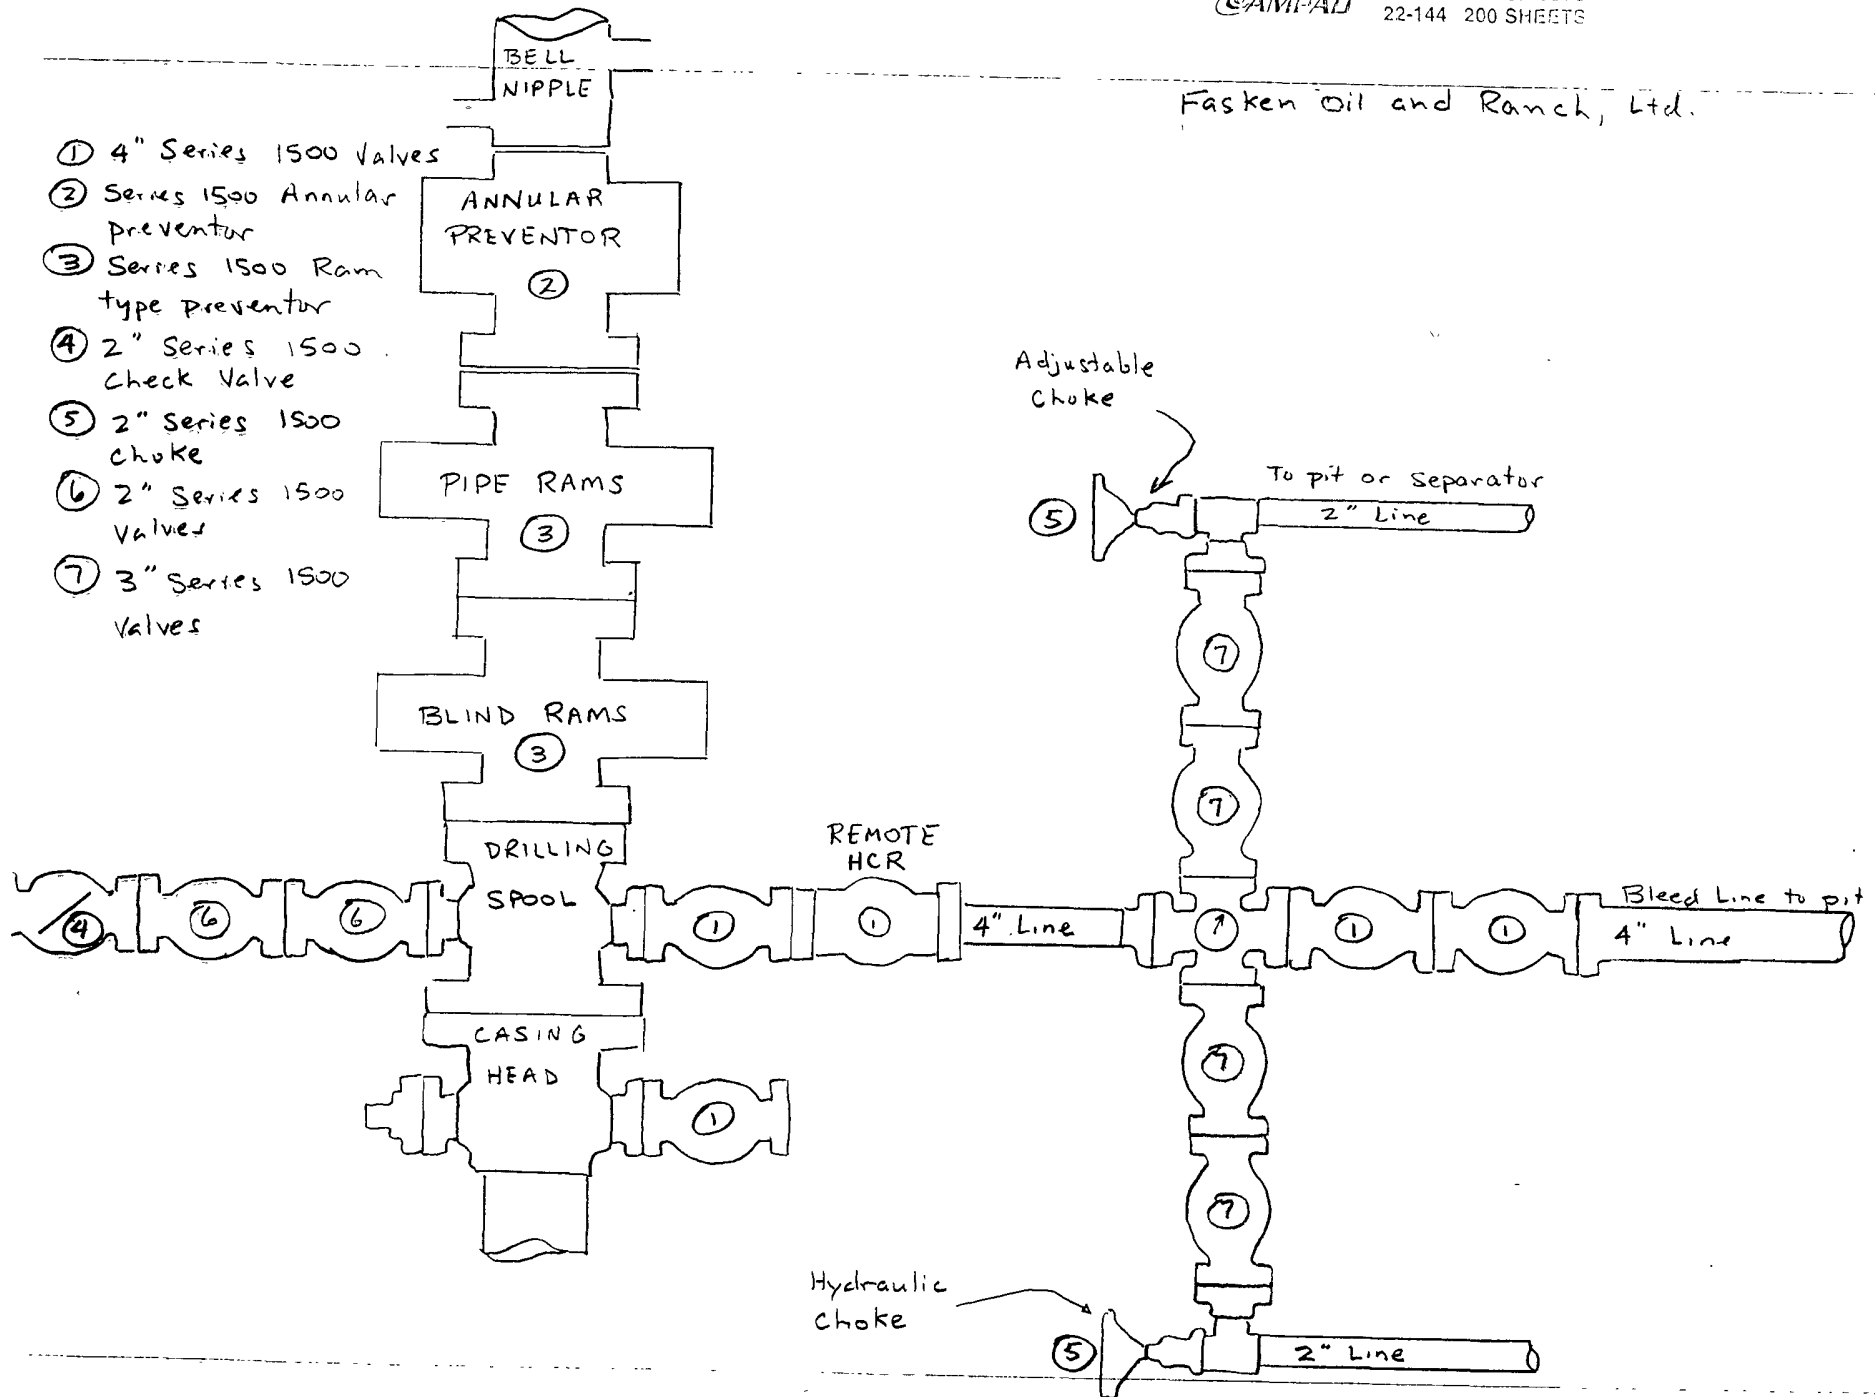 CAMPAD 22-144 200 SHEETS
Fasken Oil and Ranch, Ltd.
① 4" Series 1500 Valves
② Series 1500 Annular
preventor
③ Series 1500 Ram
type preventor
④ 2" Series 1500
Check Valve
⑤ 2" Series 1500
choke
⑥ 2" Series 1500
Valves
⑦ 3" Series 1500
Valves
BELL
NIPPLE
ANNULAR
PREVENTOR
②
PIPE RAMS
③
BLIND RAMS
③
DRILLING
SPOOL
CASING
HEAD
④
⑥
⑥
①
REMOTE
HCR
①
4" Line
①
①
Bleed Line to pit
4" Line
①
Adjustable
Choke
⑤
To pit or Separator
2" Line
⑦
⑦
⑦
⑦
Hydraulic
Choke
⑤
2" Line